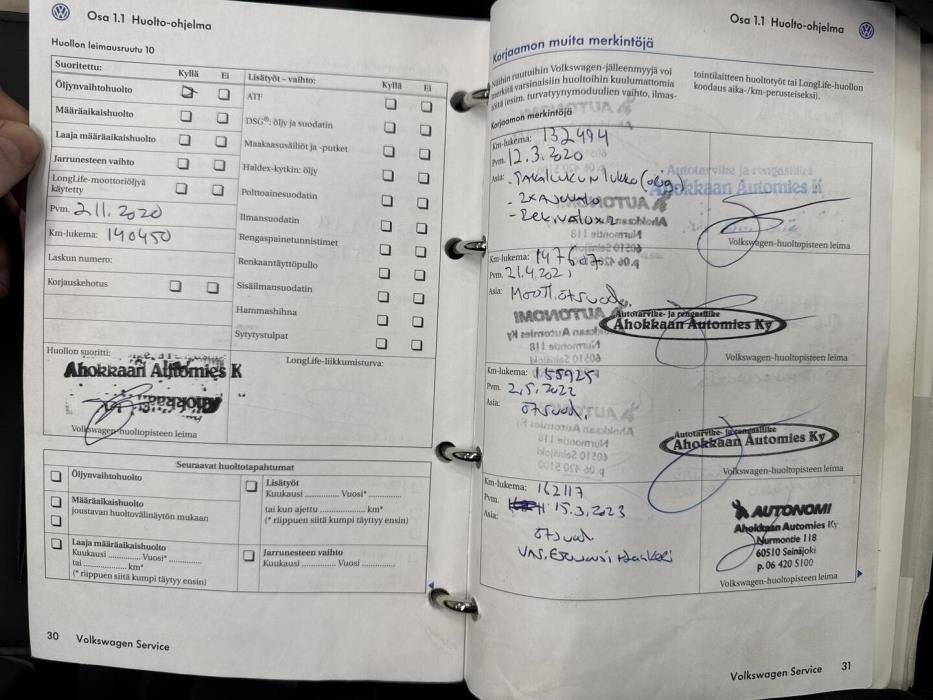 Osa 1.1 Huolto-ohjelma
Huollon leimausruutu 10
Suoritettu:
Kyllä Ei
Öljynvaihtohuolto
Määräaikaishuolto
Laaja määräaikaishuolto
Jarrunesteen vaihto
LongLife-moottoriöljyä
käytetty
Pvm. 2.11.2020
Km-lukema: 140450
Laskun numero:
Korjauskehotus
Lisätyöt - vaihto:
Kyllä Ei
ATF
DSG®: öljy ja suodatin
Maakaasusäiliöt ja -putket
Haldex-kytkin: öljy
Polttoainesuodatin
Ilmansuodatin
Rengaspainetunnistimet
Renkaantäyttöpullo
Sisäilmansuodatin
Hammashihna
Sytytystulpat
Huollon suoritti:
Ahokkaan Automies K
Volkswagen-huoltopisteen leima
LongLife-liikkumisturva:
Seuraavat huoltotapahtumat
Öljynvaihtohuolto
Määräaikaishuolto
joustavan huoltovälinäytön mukaan
Laaja määräaikaishuolto
Kuukausi .............. Vuosi* ..............
tai .................... km*
(* riippuen siitä kumpi täytyy ensin)
Lisätyöt
Kuukausi .............. Vuosi* ..............
tai kun ajettu .................... km*
(* riippuen siitä kumpi täytyy ensin)
Jarrunesteen vaihto
Kuukausi .............. Vuosi ..............
30 Volkswagen Service
Osa 1.1 Huolto-ohjelma
Korjaamon muita merkintöjä
Näihin ruutuihin Volkswagen-jälleenmyyjä voi
merkitä varsinaisiin huoltoihin kuulumattomia
töitä (esim. turvatyynymoduulien vaihto, ilmas-
tointilaitteen huoltotyöt tai LongLife-huollon
koodaus aika-/km-perusteiseksi).
Korjaamon merkintöjä
Km-lukema: 132494
Pvm. 12.3.2020
Asia: - Takaluukun lukko (orig)
Autotarvike- ja rengasliike
Ahokkaan Automies K
Volkswagen-huoltopisteen leima
Km-lukema:
Pvm. 21.4.2021
Asia: Moott.ötsuod.
Autotarvike- ja rengasliike
Ahokkaan Automies Ky
Volkswagen-huoltopisteen leima
Km-lukema: 155925
Pvm. 2.5.2022
Asia: ötsuod.
Autotarvike- ja rengasliike
Ahokkaan Automies Ky
Volkswagen-huoltopisteen leima
Km-lukema: 162117
Pvm. 15.3.2023
Asia: ötsuod
AUTONOMI
Ahokkaan Automies Ky
Nurmontie 118
60510 Seinäjoki
p. 06 420 5100
Volkswagen-huoltopisteen leima
Volkswagen Service 31